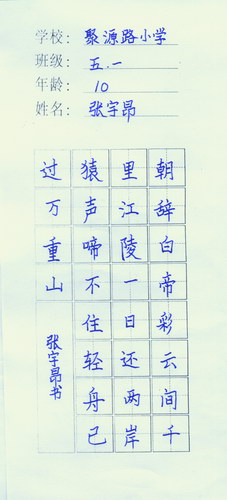 学校：聚源路小学
班级：五.一
年龄：10
姓名：张宇昂
朝辞白帝彩云间千
里江陵一日还两岸
猿声啼不住轻舟已
过万重山
张宇昂书